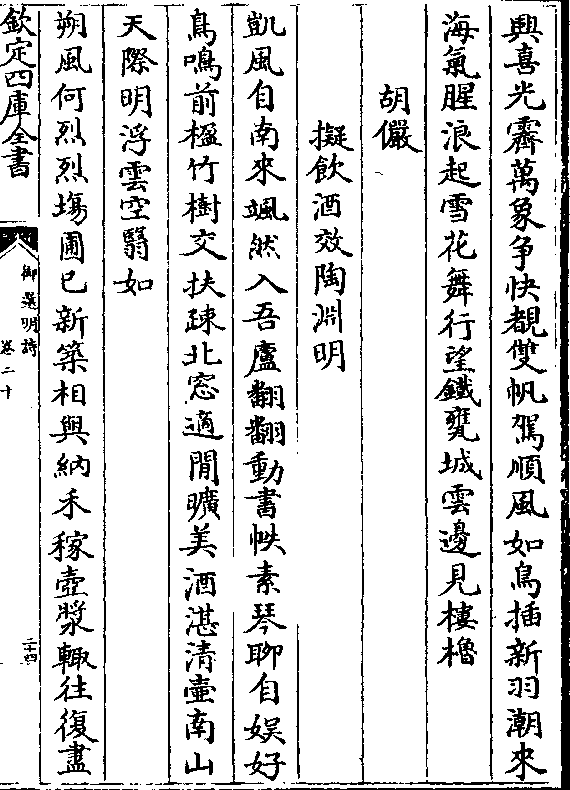 興喜光霽萬象争快覩雙帆駕順風如鳥插新羽潮來
海氣腥浪起雪花舞行望鐵甕城雲邊見樓櫓
胡儼
擬飲酒效陶淵明
凱風自南來颯然入吾廬翻翻動書帙素琴聊自娱好
鳥鳴前楹竹樹交扶疎北窓適閒曠美酒湛清壷南山
天際明浮雲空翳如
朔風何烈烈塲圃已新築相與納禾稼壺漿輙往復盡
欽定四庫全書
御選明詩
卷二十
二十四